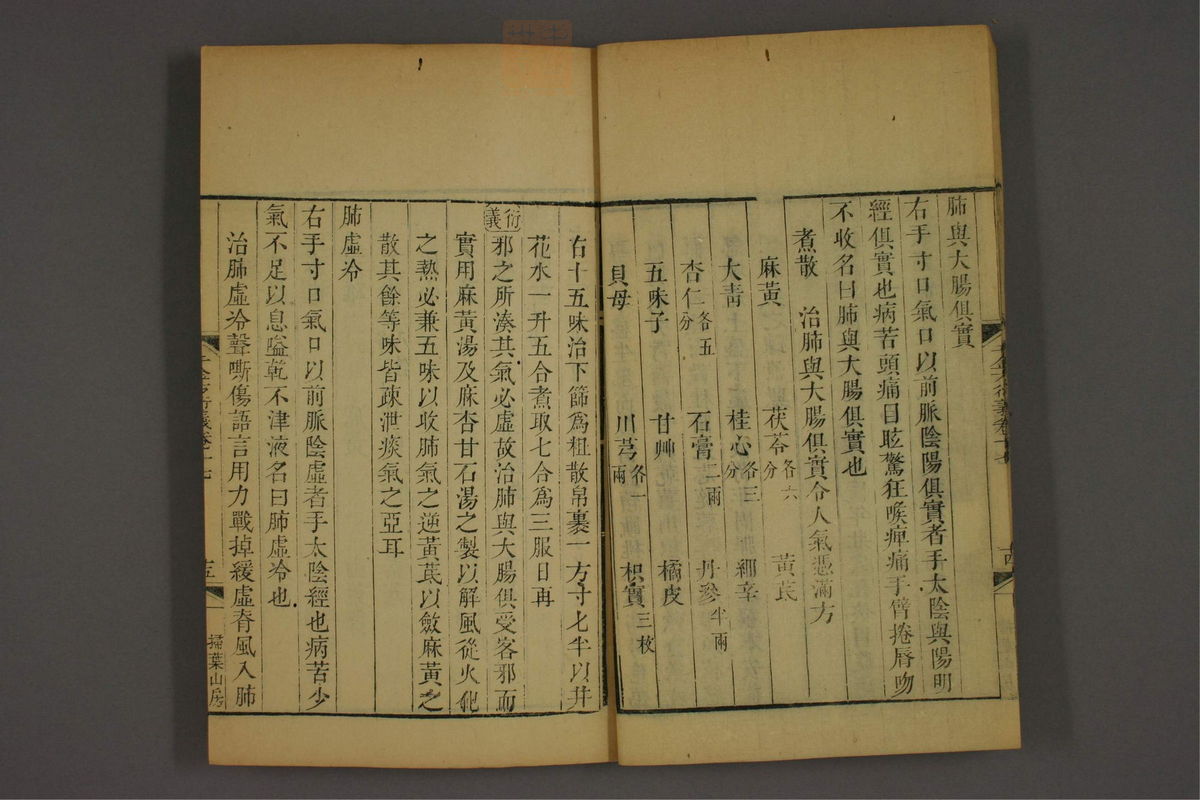 肺與大腸俱實
右手寸口氣口以前脈陰陽俱實者手太陰與陽明
經俱實也病苦頭痛目眩驚狂喉痺痛手臂捲脣吻
不收名曰肺與大腸俱實也
煮散 治肺與大腸俱實令人氣憑滿方
麻黃 茯苓各六分 黃茋
大青 桂心各三分 細辛
杏仁各五分 石膏二兩 丹參半兩
五味子 甘艸 橘皮
貝母 川芎各一兩 枳實三枚
右十五味治下篩爲粗散帛裹一方寸匕半以井
花水一升五合煮取七合爲三服日再
衍義 邪之所湊其氣必虛故治肺與大腸俱受客邪而
實用麻黃湯及麻杏甘石湯之製以解風從火化
之熱必兼五味以收肺氣之逆黃茋以斂麻黃之
散其餘等味皆疎泄痰氣之亞耳
肺虛冷
右手寸口氣口以前脈陰虛者手太陰經也病苦少
氣不足以息嗌乾不津液名曰肺虛冷也
治肺虛冷聲嘶傷語言用力戰掉緩虛瘠風入肺
千金方衍義卷十七 十五 掃葉山房